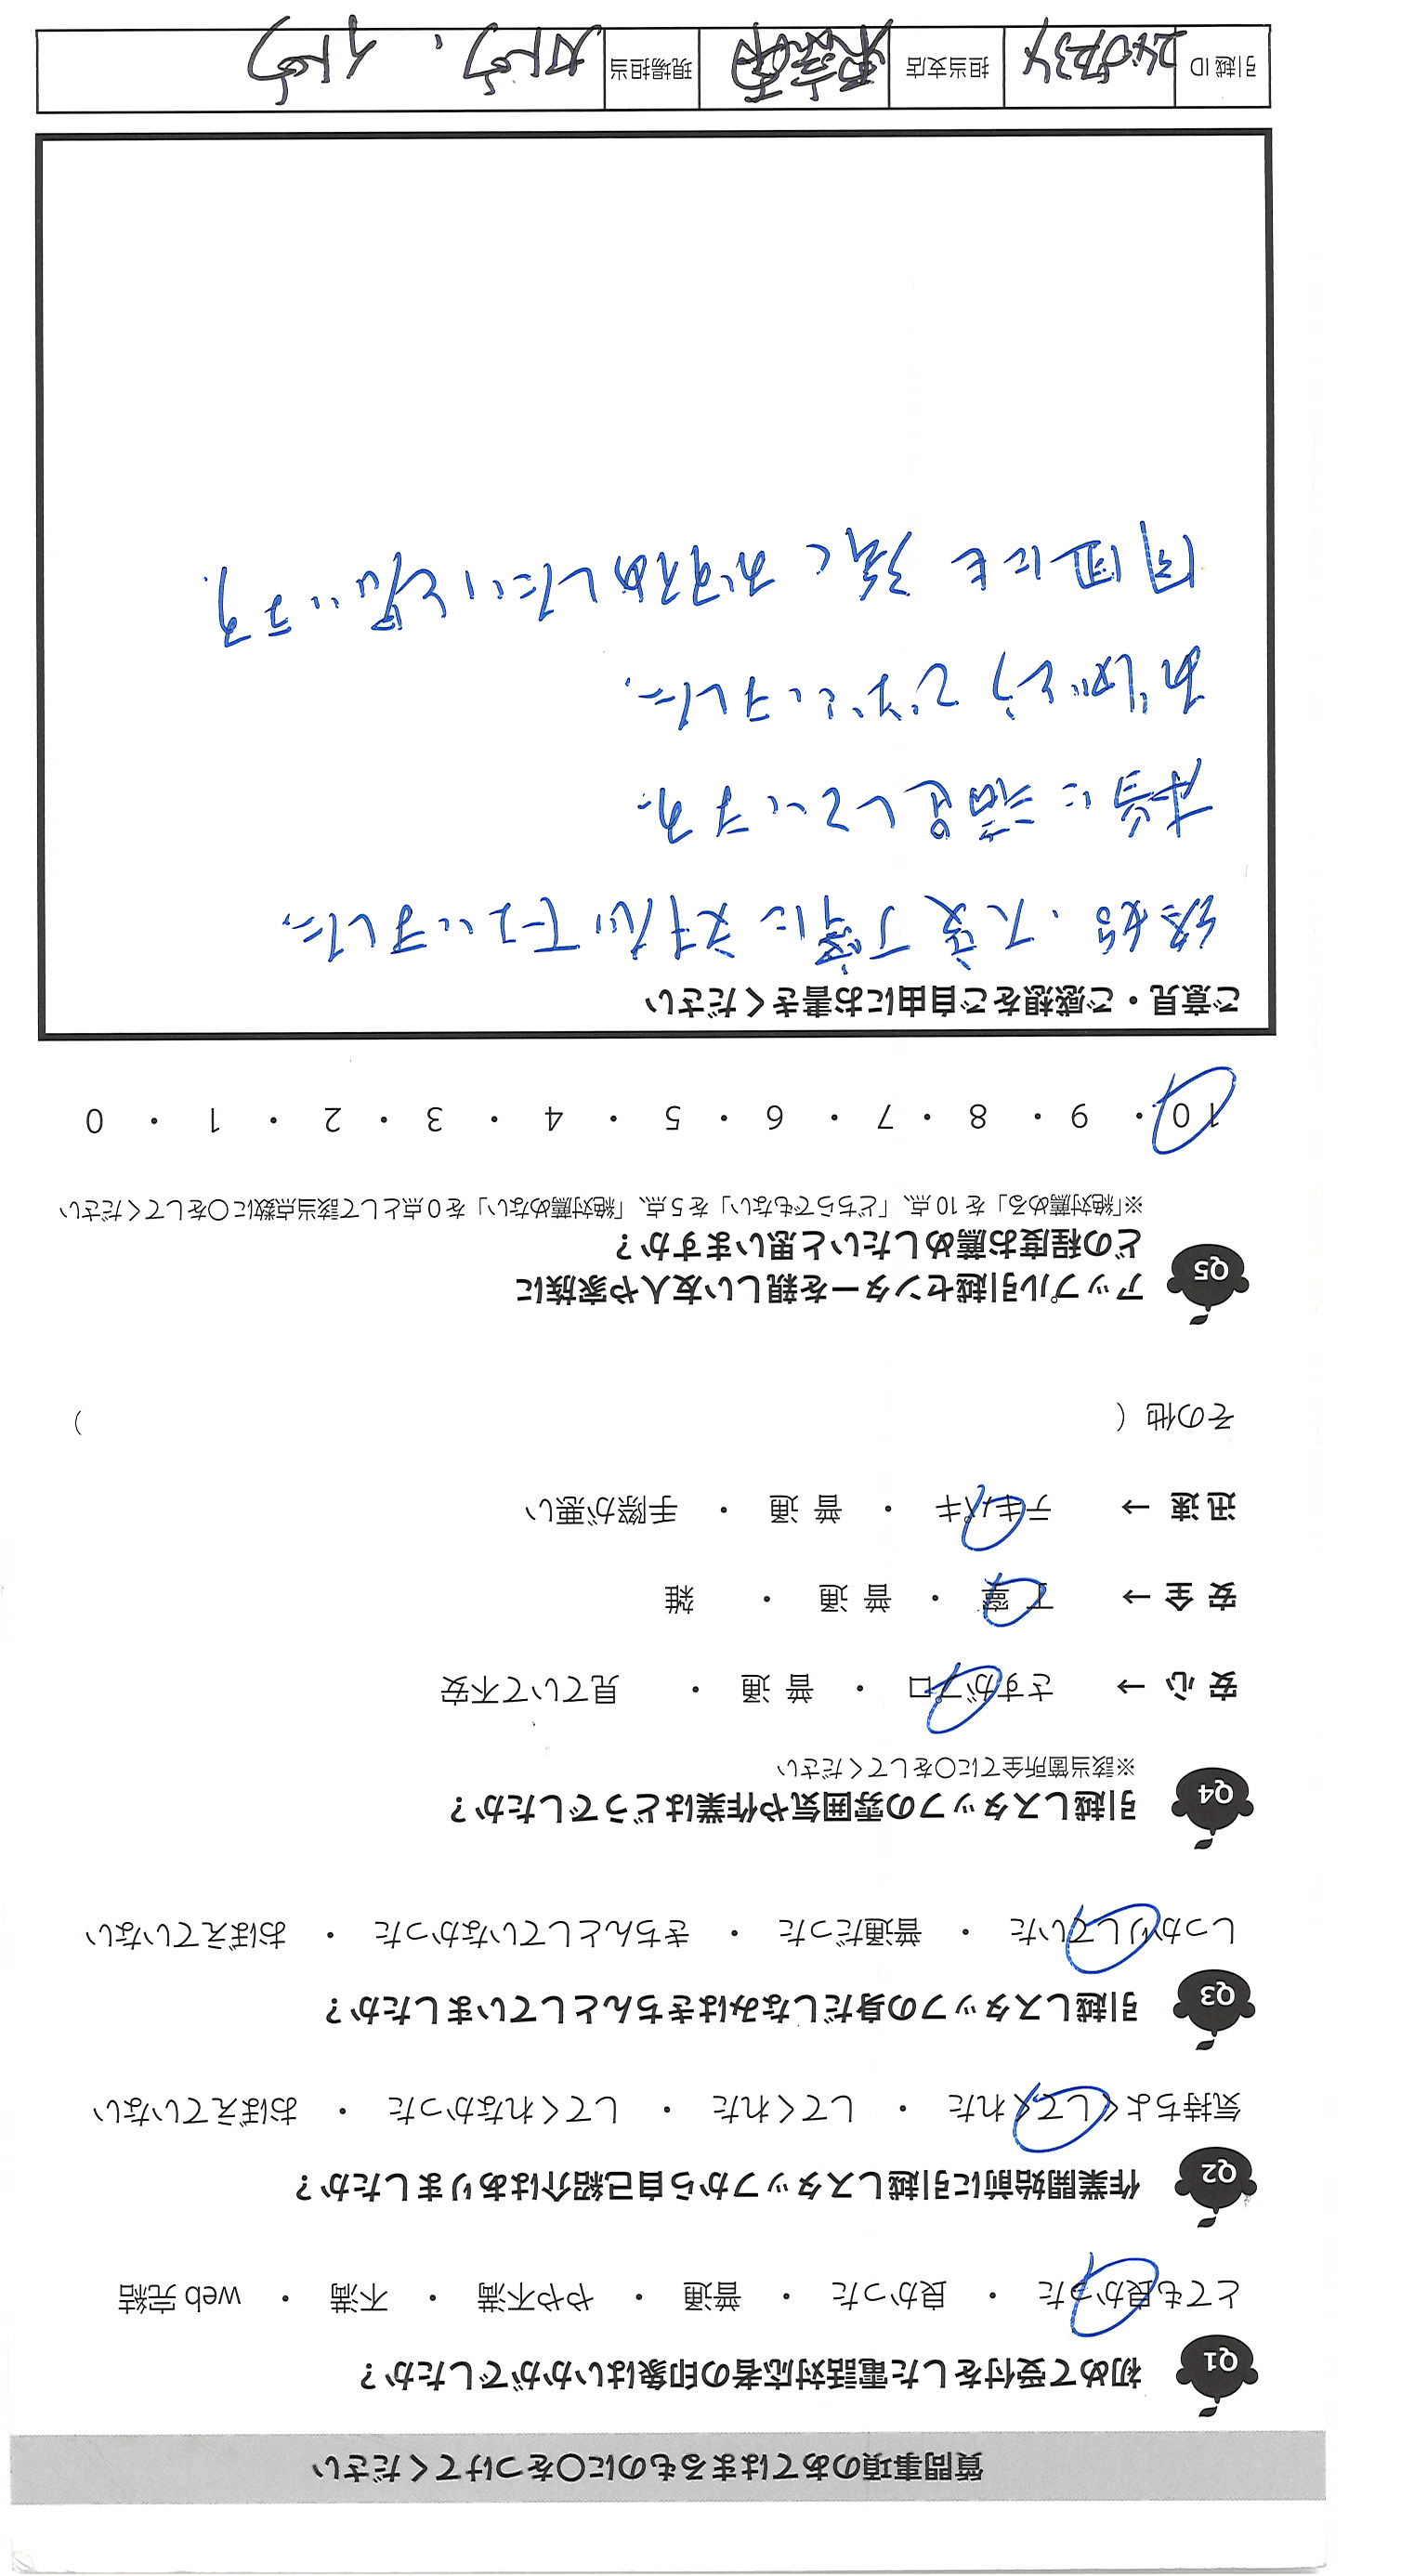 質問事項のあてはまるものに○をつけてください
Q1 初めて受付をした電話対応者の印象はいかがでしたか？
とても良かった ・ 良かった ・ 普通 ・ やや不満 ・ 不満 ・ web 完結
Q2 作業開始前に引越しスタッフから自己紹介はありましたか？
気持ちよくしてくれた ・ してくれた ・ してくれなかった ・ おぼえていない
Q3 引越しスタッフの身だしなみはきちんとしていましたか？
しっかりしていた ・ 普通だった ・ きちんとしていなかった ・ おぼえていない
Q4 引越しスタッフの雰囲気や作業はどうでしたか？
※該当箇所全てに○をしてください
安 心 → さすがプロ ・ 普 通 ・ 見ていて不安
安 全 → 丁 寧 ・ 普 通 ・ 雑
迅 速 → テキパキ ・ 普 通 ・ 手際が悪い
その他（ ）
Q5 アップル引越センターを親しい友人や家族に
どの程度お薦めしたいと思いますか？
※「絶対薦める」を 10 点、「どちらでもない」を 5 点、「絶対薦めない」を 0 点として該当点数に○をしてください
10 ・ 9 ・ 8 ・ 7 ・ 6 ・ 5 ・ 4 ・ 3 ・ 2 ・ 1 ・ 0
ご意見・ご感想をご自由にお書きください
終始、大変丁寧に対応下さいました。
非常に満足しています。
ありがとうございました。
周囲にも強くおすすめしたいと思います。
引越 ID 担当支店 現場担当